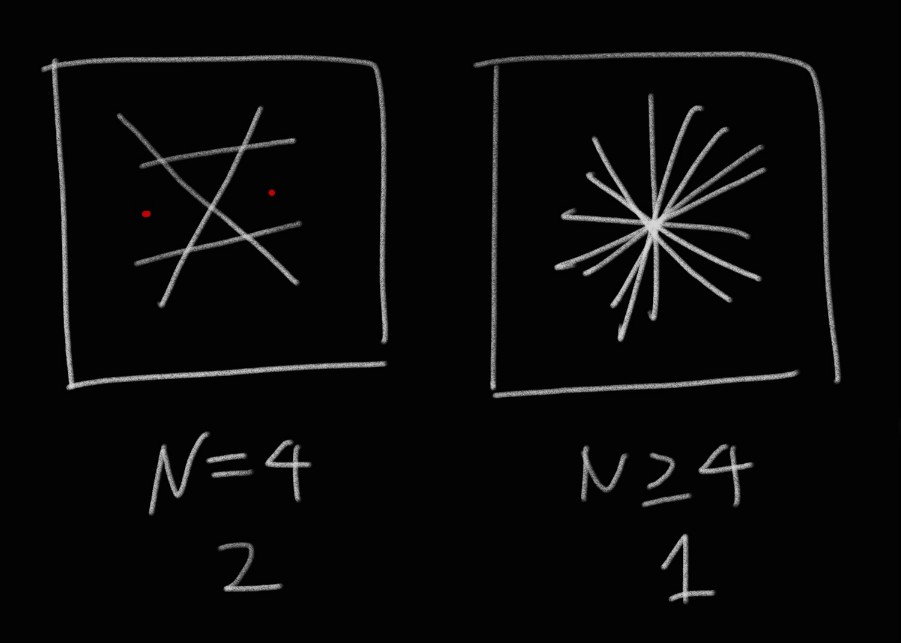 N=4
2
N≥4
1